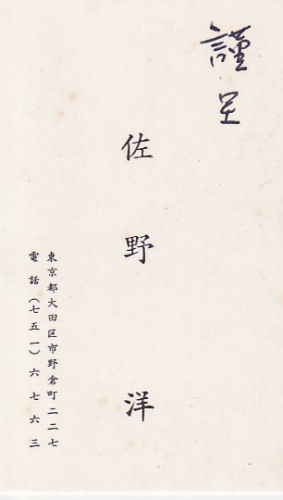 謹呈
佐野洋
東京都大田区市野倉町二二七
電話(七五一)六七六三